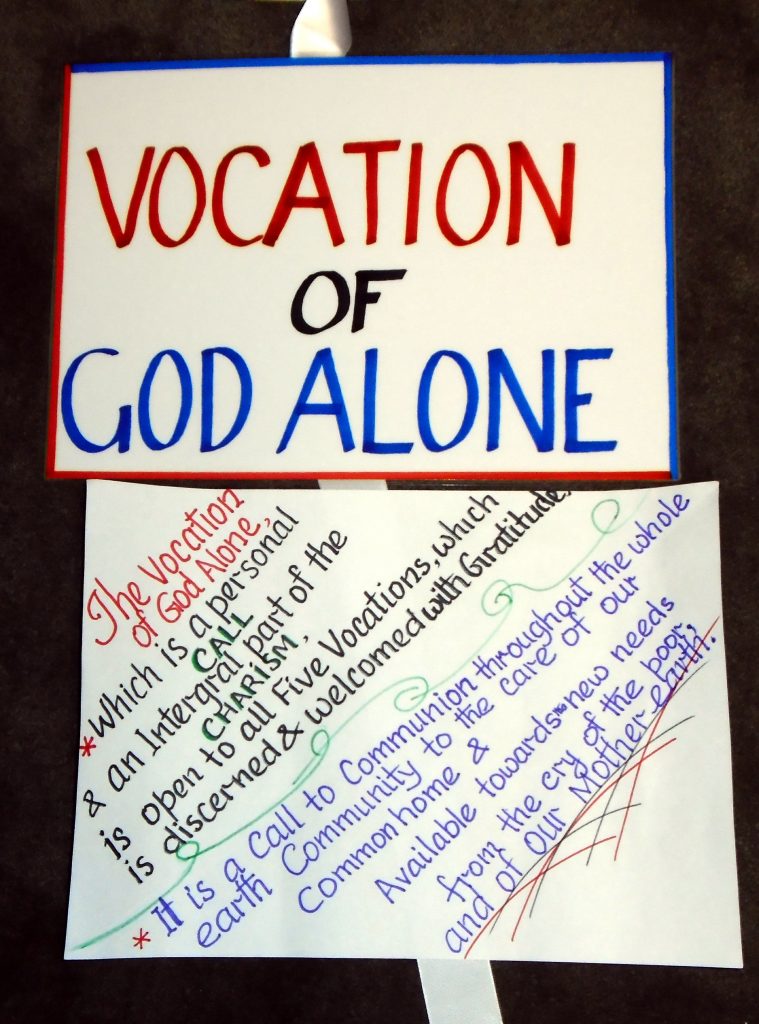 VOCATION
OF
GOD ALONE
The Vocation
of God Alone,
* Which is a personal
CALL
& an Intergral part of the
CHARISM,
is open to all Five Vocations, which
is discerned & welcomed with Gratitude,
* It is a call to Communion throughout the whole
earth Community to the care of our
Common home &
Available towards new needs
from the cry of the poor,
and of our Mother earth.